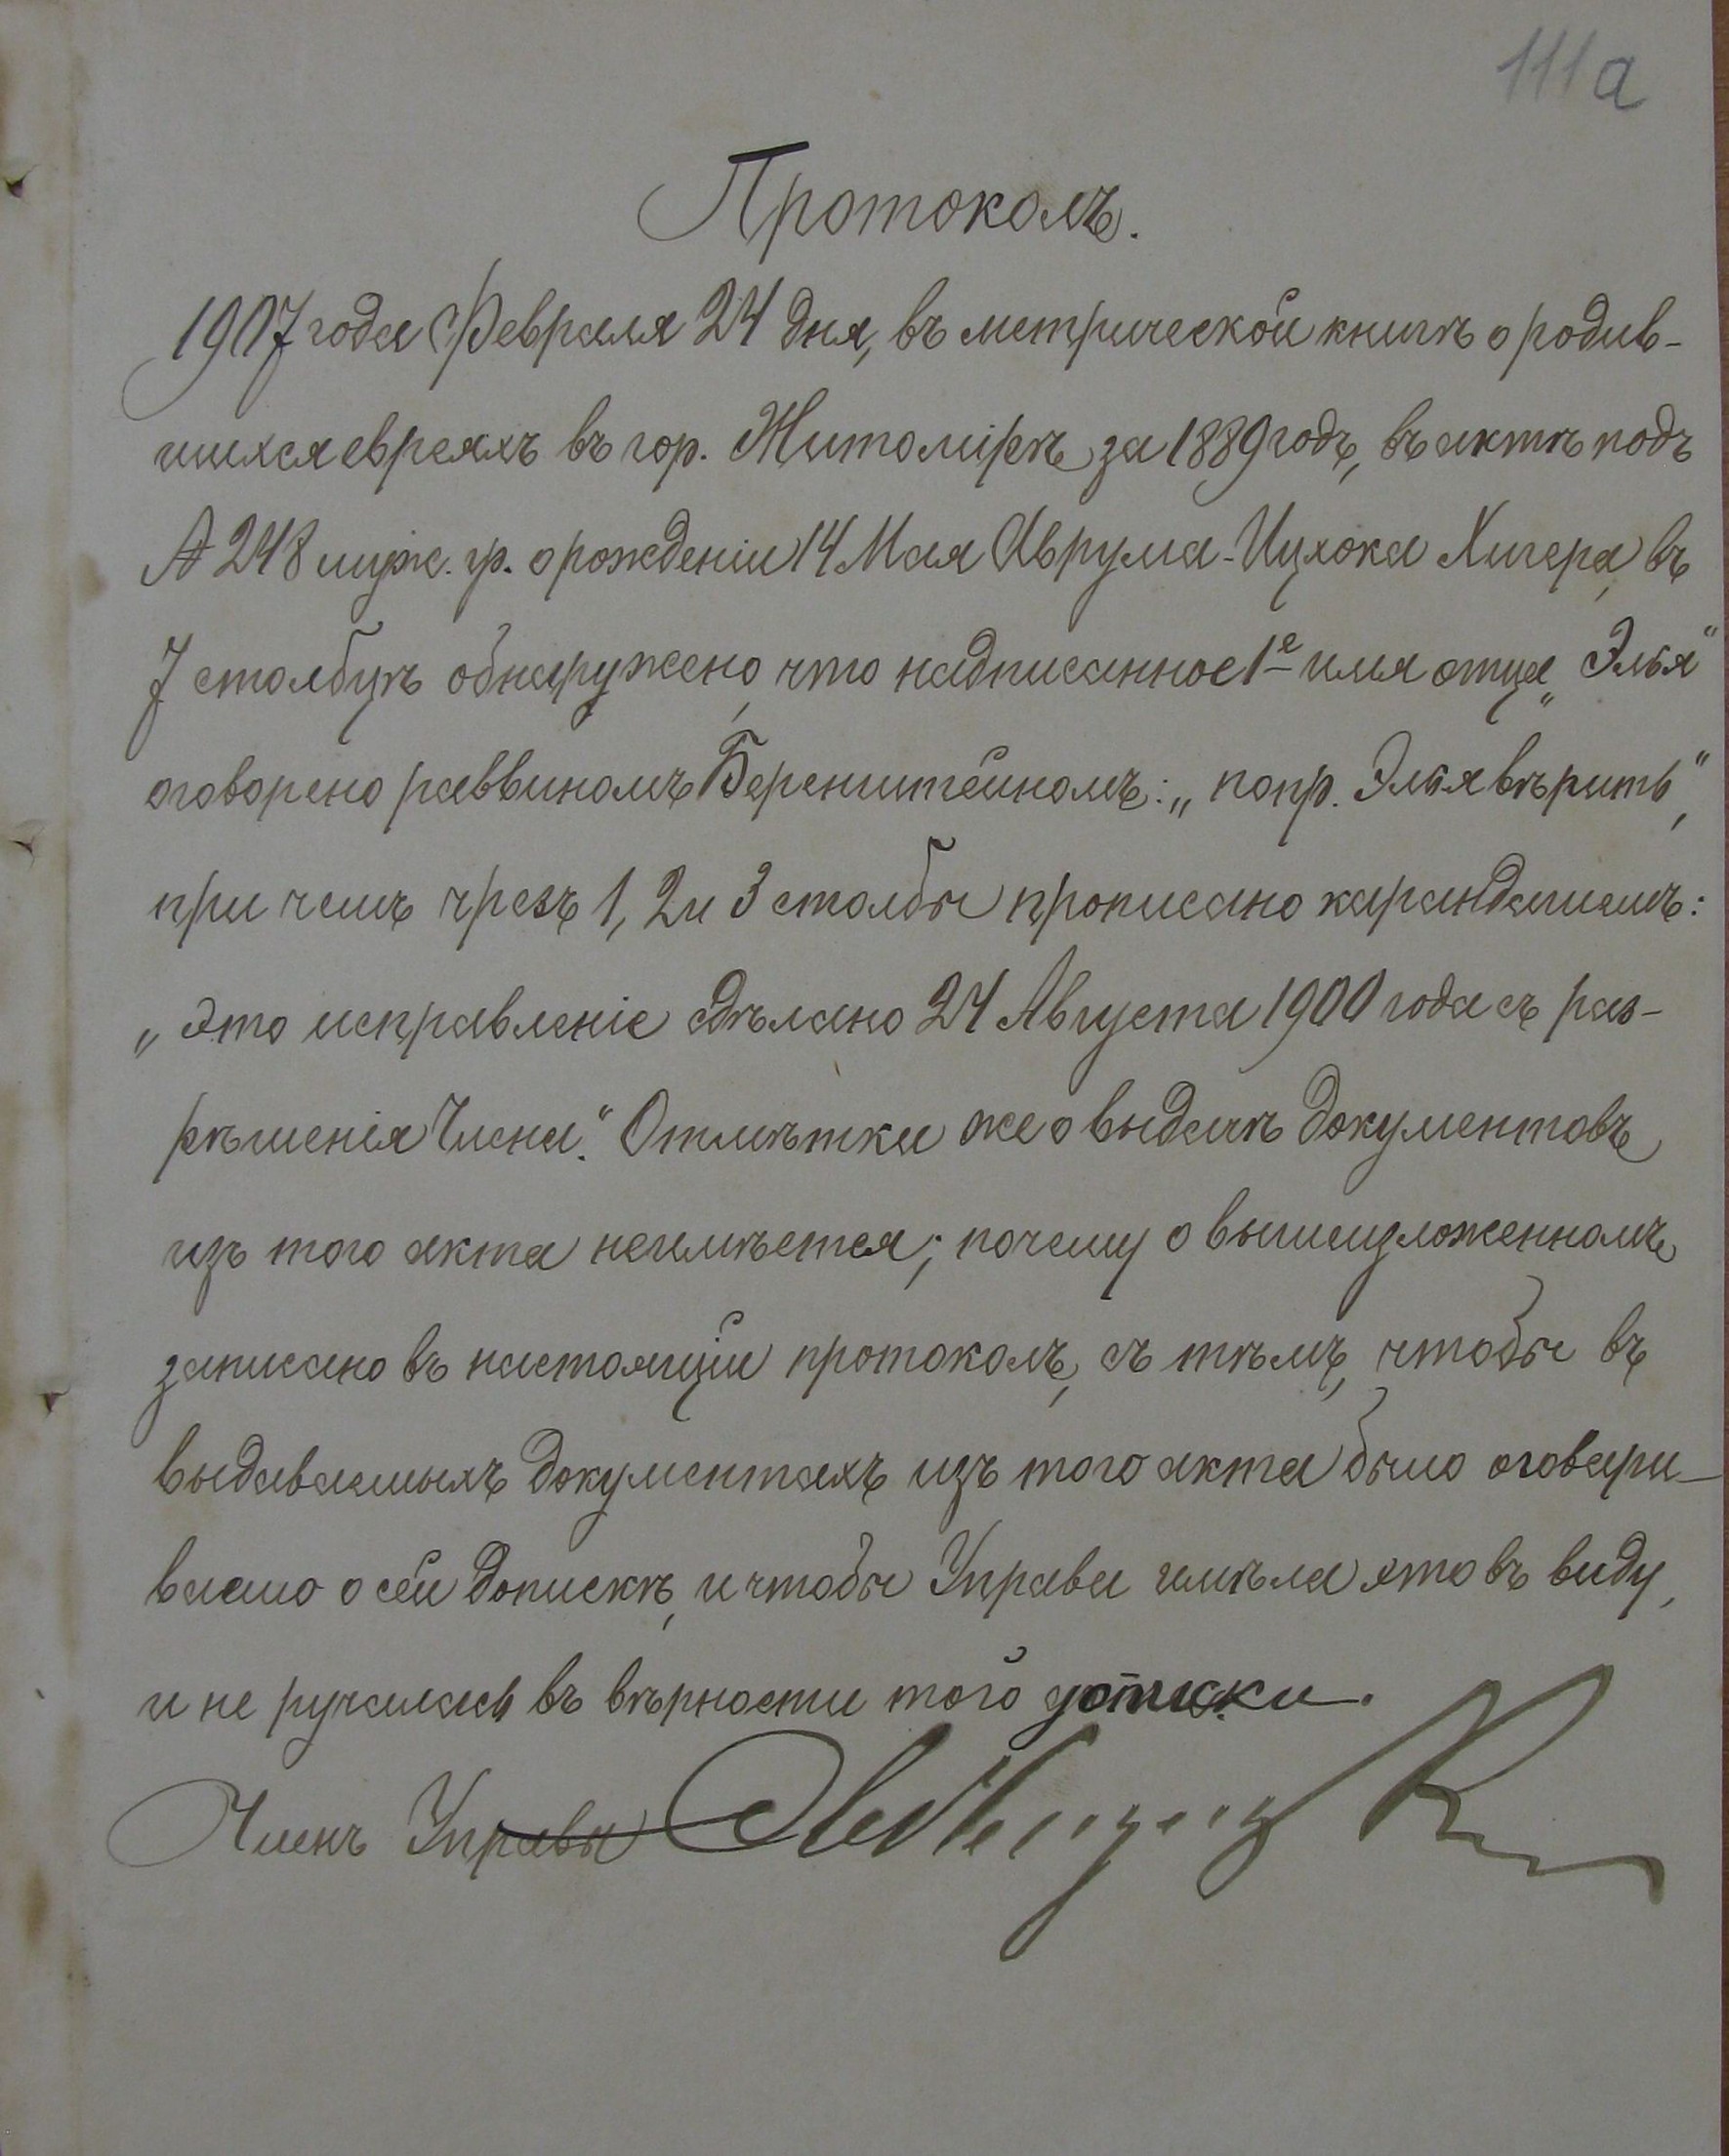 111а
Протоколъ.
1907 года Февраля 24 дня, въ метрической книгѣ о родив-
шихся евреяхъ въ гор. Житомірѣ за 1889 годъ, въ актѣ подъ
№ 248 муж. гр. о рожденіи 14 Мая Аврума-Ицхока Хигера, въ
7 столбцѣ обнаружено, что надписанное 1е имя отца „Элья“
оговорено раввиномъ Беренштейномъ: „попр. Элья вѣрить“,
при чемъ чрезъ 1, 2 и 3 столбы прописано карандашемъ:
„это исправленіе сдѣлано 24 Августа 1900 года съ раз-
рѣшенія Члена.“ Отмѣтки же о выдачѣ документовъ
изъ того акта неимѣется; почему о вышеизложенномъ
записано въ настоящій протоколъ, съ тѣмъ, чтобы въ
выдаваемыхъ документахъ изъ того акта было оговари-
ваемо о сей допискѣ, и чтобы Управа имѣла это въ виду,
и не ручалась въ вѣрности того
Членъ Управы